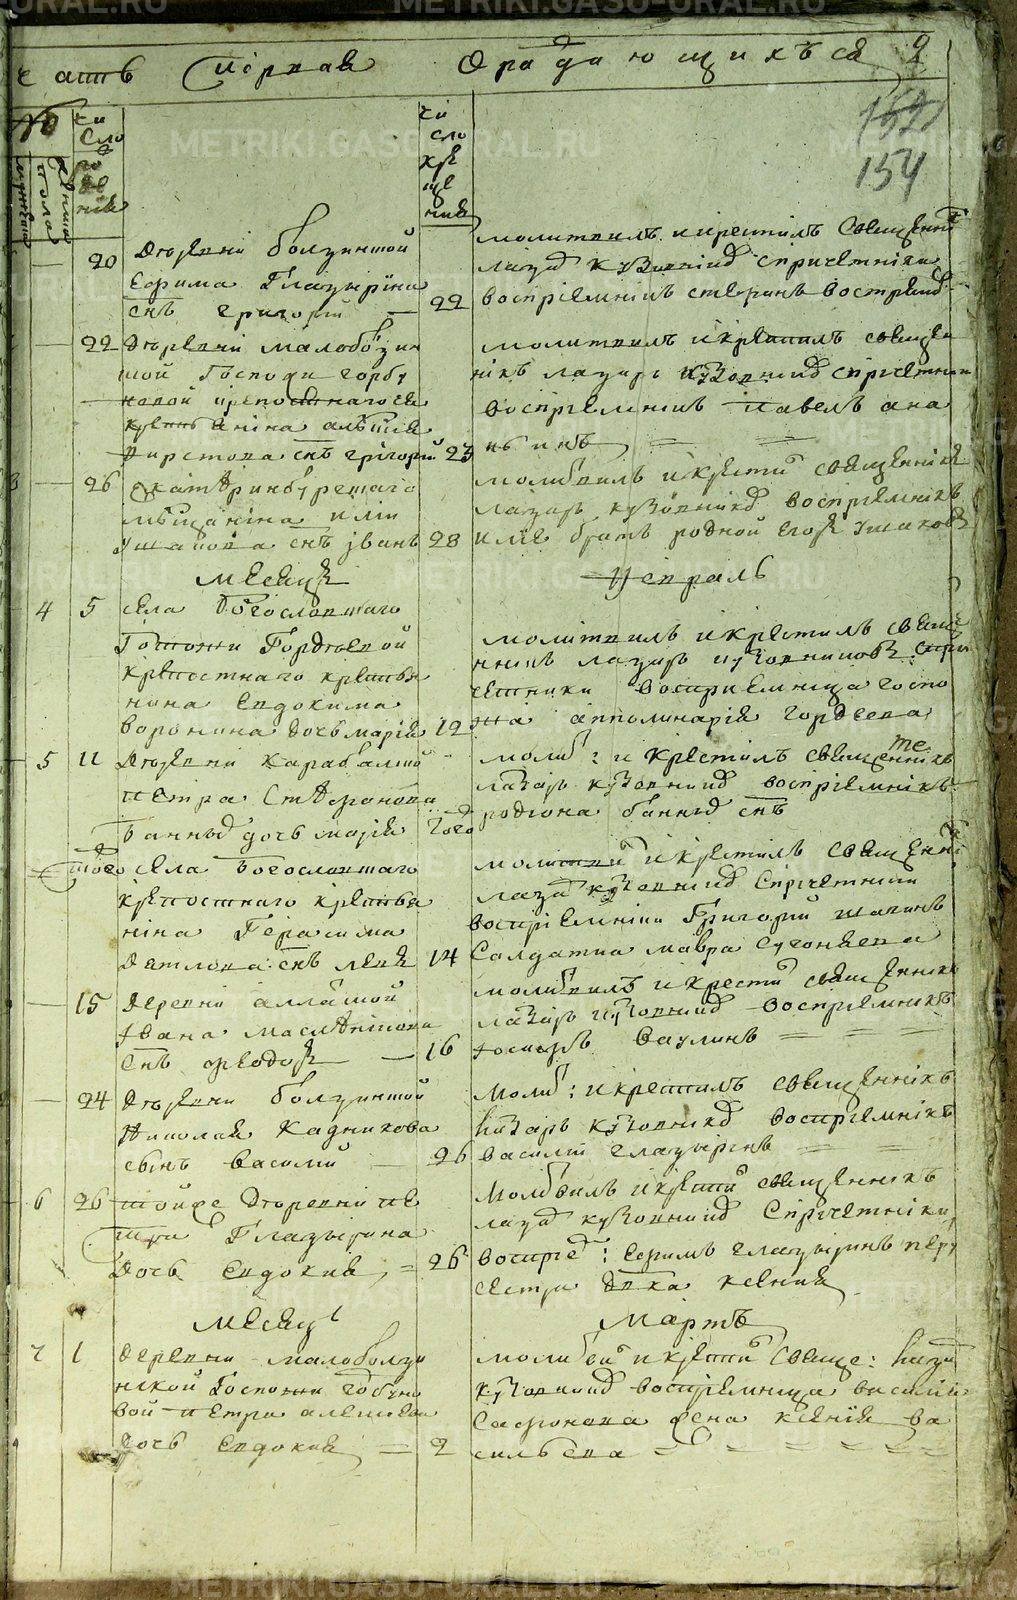 METRIKI.GASO-URAL.RU
часть первая о раждающихъся 2
152
154
№
число рождения
число крещения
20 Деревни болзинской
Ефима Глазырина
снъ григорий
22
молитвилъ и крестилъ священникъ
лазарь кузовников спричетники
восприемникъ
22 Деревни малоболзин
ской Госпожи горбу
новой крепостнаго
крестьянина алексея
снъ григорий 23
молитвилъ и крестилъ священ
никъ лазарь кузовников спричетники
восприемникъ павелъ ана
ньинъ
26 Екатеринбургскаго
мещанина илии
ушакова снъ иванъ 28
молитвилъ и крестилъ священникъ
лазарь кузовников восприемникъ
братъ родной егоръ ушаковъ
месяцъ февраль
4 5 села богословскаго
Госпожи Гордеевой
крепостнаго крестья
нина Евдокима
воронина дочь мария 12
молитвилъ и крестилъ свяще
нникъ лазарь кузовниковъ спри
четники восприемница госпо
жа апполинария гордеева
5 11 Деревни карабалской
петра Стафонова
банных дочь мария того
молит: и крестилъ священникъ
лазарь кузовников восприемникъ
родиона банных снъ
того села богословскаго
крепостнаго крестья
нина Герасима
Детлова снъ левъ 14
молитвил и крестилъ священник
лазар кузовников спричетники
восприемники Григорий шапинъ
Солдатка мавра
15 деревни аллакской
Ивана масленикова
снъ феодоръ 16
молитвилъ и крестил священникъ
лазарь кузовников восприемникъ
иосифъ ваулинъ
24 Деревни болзинской
Николая Кадникова
сынъ василий 26
молит: и крестилъ священникъ
лазарь кузовников восприемникъ
василий глазыринъ
6 26 тойже Деревни пе
тра Глазырина
Дочь Евдокия 26
молитвилъ и крестил священникъ
лазар кузовников спричетники
восприе: Ефимъ глазыринъ
сестра Девка ксения
месяцъ мартъ
7 1 деревни малоболзи
нской Госпожи горбуно
вой петра алексеева
дочь Евдокия 2
молитвил и крестил свяще: лазар
кузовников восприемница василия
Сафонова жена ксения ва
сильева